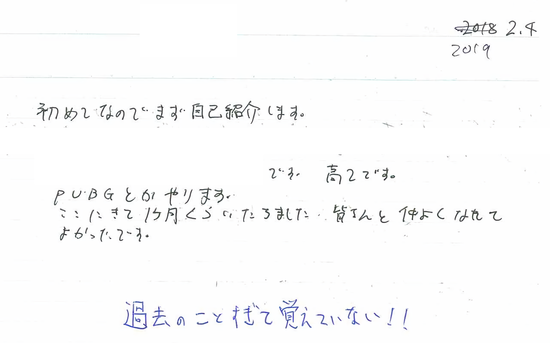 2018 2.4
2019
初めてなのでまず自己紹介します。
です。 高2です。
PUBGとかやります。
ここにきて1ヶ月くらいたちました。皆さんと仲よくなれて
よかったです。
過去のことすぎて覚えていない!!